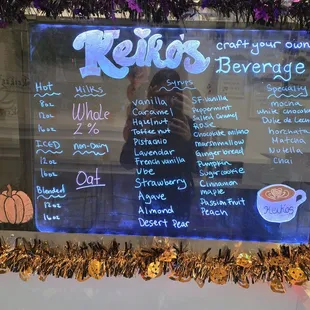 Keiko's
craft your own
Beverage
Hot
8oz
12oz
16oz
ICED
12oz
16oz
Blended
12oz
16oz
Milks
Whole
2%
non-Dairy
Oat
Syrups
vanilla
Caramel
Hazelnut
Toffee nut
Pistachio
Lavendar
French vanilla
Ube
Strawberry
Agave
Almond
Desert Pear
SF Vanilla
Peppermint
Salted Caramel
Rose
Chocolate
marshmallow
Ginger bread
Pumpkin
Sugar cookie
Cinnamon
maple
Passion Fruit
Peach
Specialty
mocha
white chocolate
Dulce de Leche
horchata
Matcha
Nutella
Chai
Keikos